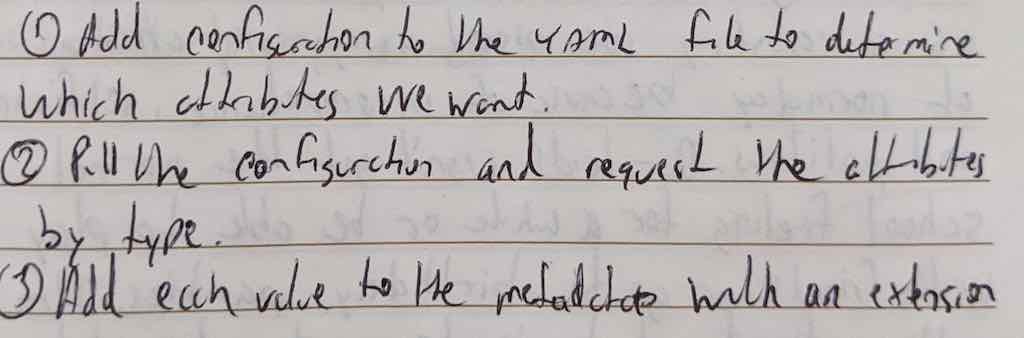 ① Add configuration to the YAML file to determine
which attributes we want.
② Pull the configuration and request the attributes
by type.
③ Add each value to the metadata with an extension